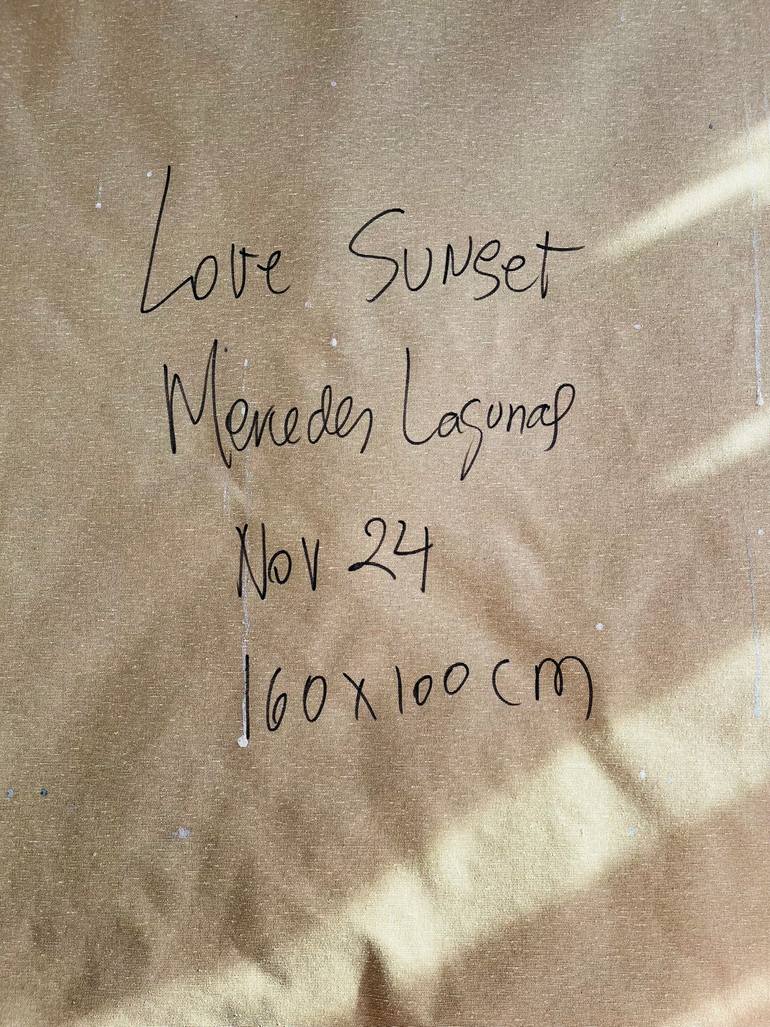 Love Sunset
Mercedes Lagunas
Nov 24
160x100cm